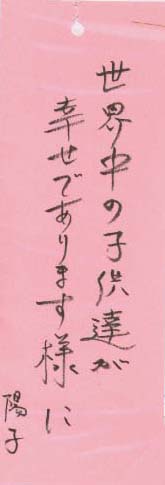 世界中の子供達が
幸せであります様に
陽子